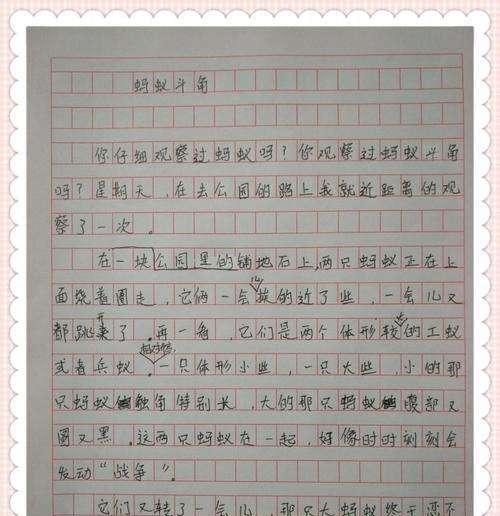 蚂蚁斗角
你仔细观察过蚂蚁吗?你观察过蚂蚁斗角
吗?星期天,在去公园的路上我就近距离的观
察了一次。
在一块公园里的铺地石上,两只蚂蚁正在上
面绕着圈走,它俩一会儿挨的近了些,一会儿又
都跳开了。再一看,它们是两个体形较大的工蚁
或者兵蚁。相对而言一只体形小些,一只大些,小的那
只蚂蚁触角特别长,大的那只蚂蚁腹部又
圆又黑。这两只蚂蚁在一起,好像时时刻刻会
发动“战争”。
它们又转了一会儿,那只大蚂蚁终于忍不